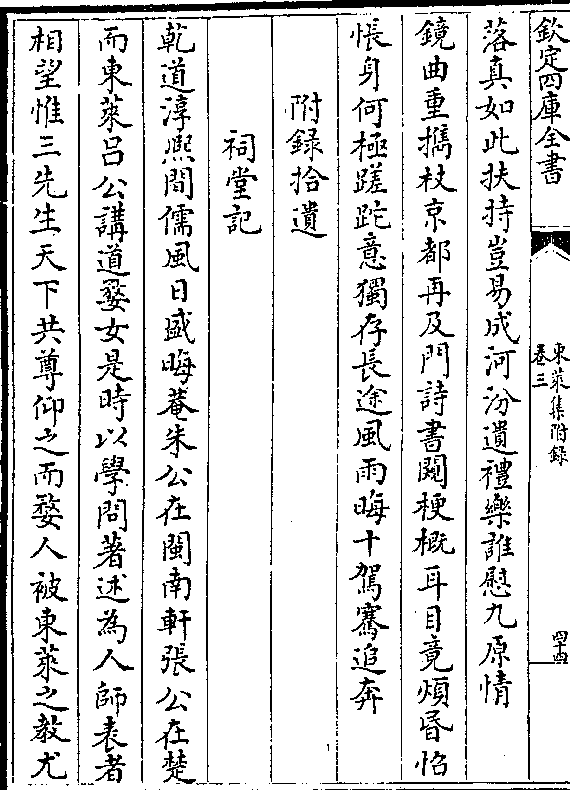 欽定四庫全書
東萊集附録
卷三
四十四
落真如此扶持豈易成河汾遺禮樂誰慰九原情
鏡曲重攜杖京都再及門詩書闚梗概耳目竟煩昬怊
悵身何極蹉跎意獨存長途風雨晦十駕騫追奔
附録拾遺
祠堂記
乾道淳熈間儒風日盛晦菴朱公在閩南軒張公在楚
而東萊呂公講道婺女是時以學問著述為人師表者
相望惟三先生天下共尊仰之而婺人被東萊之教尤